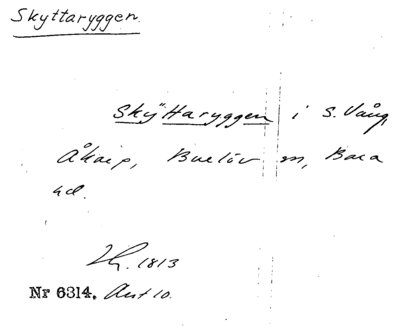 Skyttaryggen.
Skyttaryggen i S. Vång,
Åkarp, Burlöv sn, Bara
hd.
Lh. 1813
Nr 6314. Ant 10.